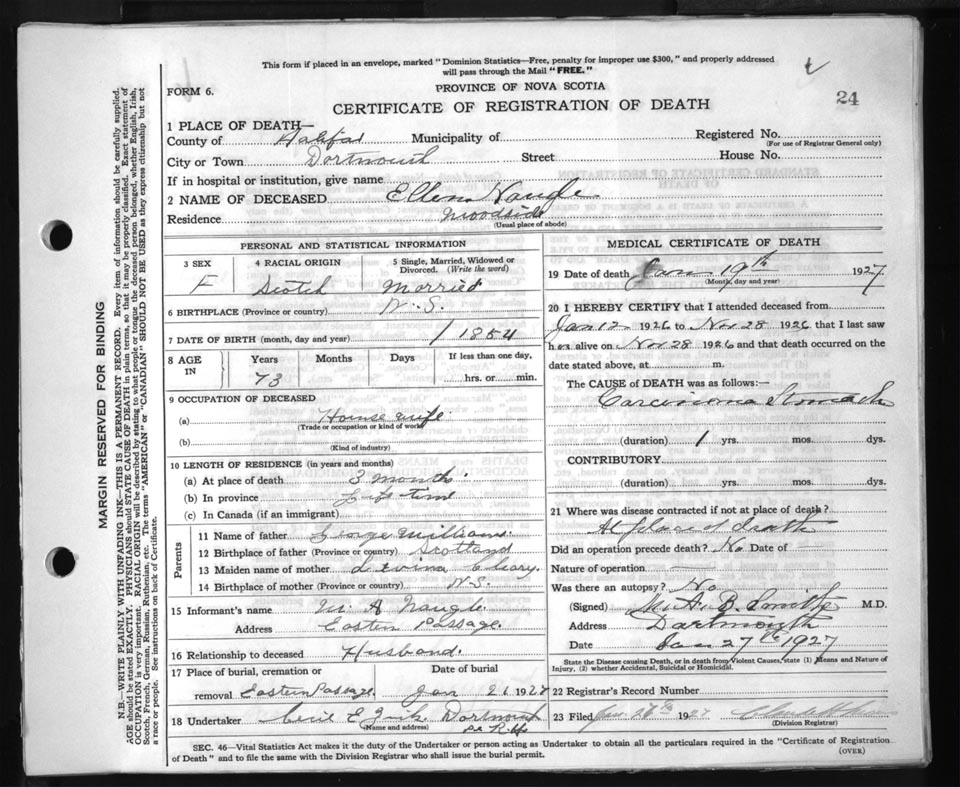 This form if placed in an envelope, marked "Dominion Statistics—Free, penalty for improper use $300," and properly addressed
will pass through the Mail "FREE."
PROVINCE OF NOVA SCOTIA
FORM 6.
CERTIFICATE OF REGISTRATION OF DEATH
24
1 PLACE OF DEATH—
County of Halifax Municipality of Registered No.
(For use of Registrar General only)
City or Town Dartmouth Street House No.
If in hospital or institution, give name
2 NAME OF DECEASED Ellen Naugle
Residence Woodside
(Usual place of abode)
PERSONAL AND STATISTICAL INFORMATION
3 SEX F
4 RACIAL ORIGIN Scotch
5 Single, Married, Widowed or Divorced. (Write the word) Married
6 BIRTHPLACE (Province or country) N.S.
7 DATE OF BIRTH (month, day and year) 1854
8 AGE IN Years Months Days If less than one day,
73 hrs. or min.
9 OCCUPATION OF DECEASED
(a) Housewife
(Trade or occupation or kind of work)
(b)
(Kind of industry)
10 LENGTH OF RESIDENCE (in years and months)
(a) At place of death 3 months
(b) In province
(c) In Canada (if an immigrant)
Parents
11 Name of father George Williams
12 Birthplace of father (Province or country) Scotland
13 Maiden name of mother
14 Birthplace of mother (Province or country) N.S.
15 Informant's name M. A Naugle
Address Eastern Passage
16 Relationship to deceased Husband.
17 Place of burial, cremation or Date of burial
removal Eastern Passage Jan 21 1927
18 Undertaker Dartmouth
(Name and address)
MEDICAL CERTIFICATE OF DEATH
19 Date of death Jan 19th 1927
(Month, day and year)
20 I HEREBY CERTIFY that I attended deceased from
Jan 12 1926 to Nov 28 1926 that I last saw
her alive on Nov 28 1926 and that death occurred on the
date stated above, at m.
The CAUSE of DEATH was as follows:—
Carcinoma Stomach
(duration) 1 yrs. mos. dys.
CONTRIBUTORY
(duration) yrs. mos. dys.
21 Where was disease contracted if not at place of death?
At place of death
Did an operation precede death? No Date of —
Nature of operation —
Was there an autopsy? No
(Signed) B. Smith M.D.
Address Dartmouth
Date Jan 27th 1927
State the Disease causing Death, or in death from Violent Causes, state (1) Means and Nature of
Injury, (2) whether Accidental, Suicidal or Homicidal.
22 Registrar's Record Number
23 Filed Jan. 1927
(Division Registrar)
SEC. 46—Vital Statistics Act makes it the duty of the Undertaker or person acting as Undertaker to obtain all the particulars required in the "Certificate of Registration
of Death" and to file the same with the Division Registrar who shall issue the burial permit.
(OVER)
MARGIN RESERVED FOR BINDING
N.B.—WRITE PLAINLY WITH UNFADING INK—THIS IS A PERMANENT RECORD. Every item of information should be carefully supplied.
AGE should be stated EXACTLY. PHYSICIANS should STATE CAUSE OF DEATH in plain terms, so that it may be properly classified. Exact statement of
OCCUPATION is very important. RACIAL ORIGIN will be described by stating to what people or tongue the deceased person belonged, whether English, Irish,
Scotch, French, German, Russian, Ruthenian, etc. The terms "AMERICAN" or "CANADIAN" SHOULD NOT BE USED as they express citizenship but not
a race or people. See instructions on back of Certificate.